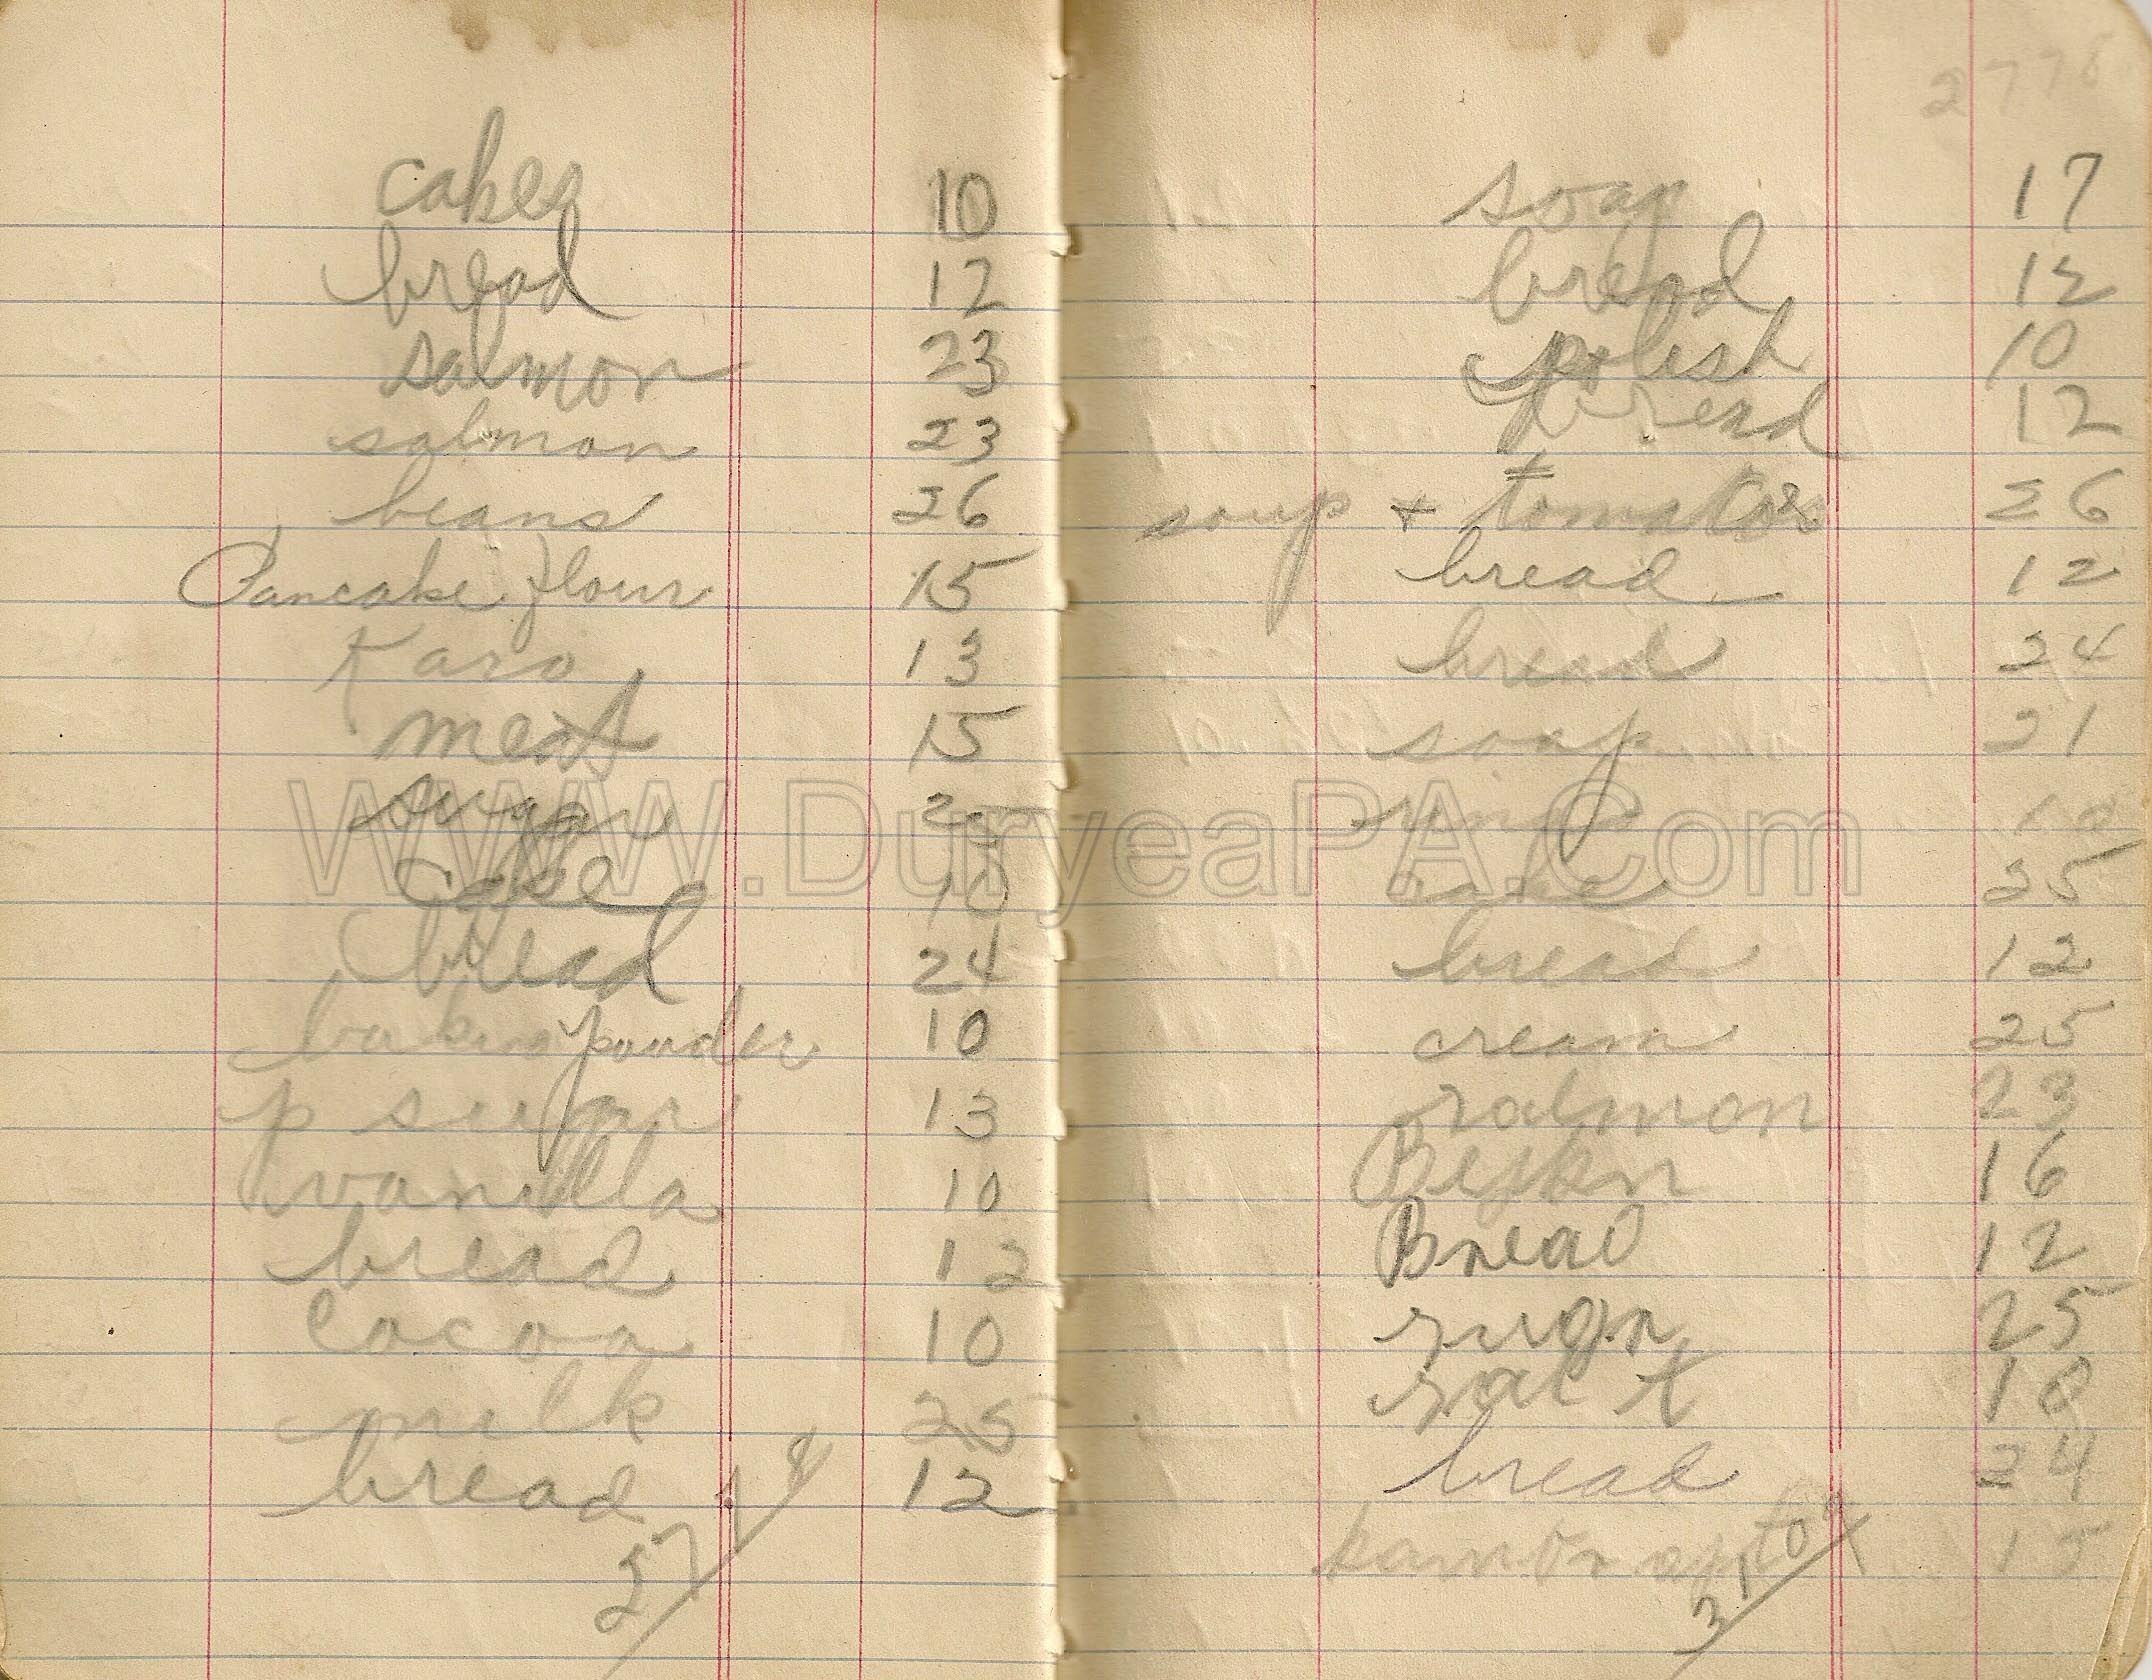 cakes 10
bread 12
salmon 23
salmon 23
beans 26
Pancake flour 15
Karo 13
meat 15
sugar 25
cake 10
bread 24
baking powder 10
p sugar 13
vanilla 10
bread 12
cocoa 10
milk 25
bread 12
2778
soap 17
bread 12
polish 10
bread 12
soup + tomatoes 26
bread 12
bread 24
soap 21
10
cake 35
bread 12
cream 25
salmon 23
16
Bread 12
sugr 25
salt 10
bread 24
15
WWW.DuryeaPA.Com